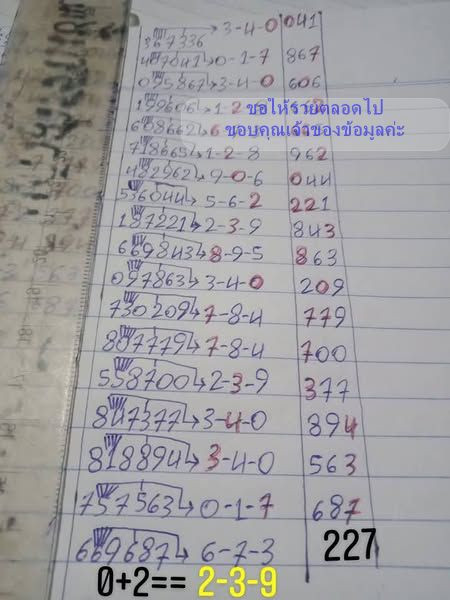 367336 3-4-0 041
407041 0-1-7 867
095867 3-4-0 606
199606 1-2
ขอให้รวยตลอดไป
608662
ขอบคุณเจ้าของข้อมูลค่ะ
718665 1-2-8 962
482962 9-0-6 044
536044 5-6-2 221
187221 2-3-9 843
669843 8-9-5 863
097863 3-4-0 209
730209 7-8-4 779
807779 7-8-4 700
558700 2-3-9 377
847377 3-4-0 894
818894 3-4-0 563
757563 0-1-7 687
669687 6-7-3 227
0+2== 2-3-9